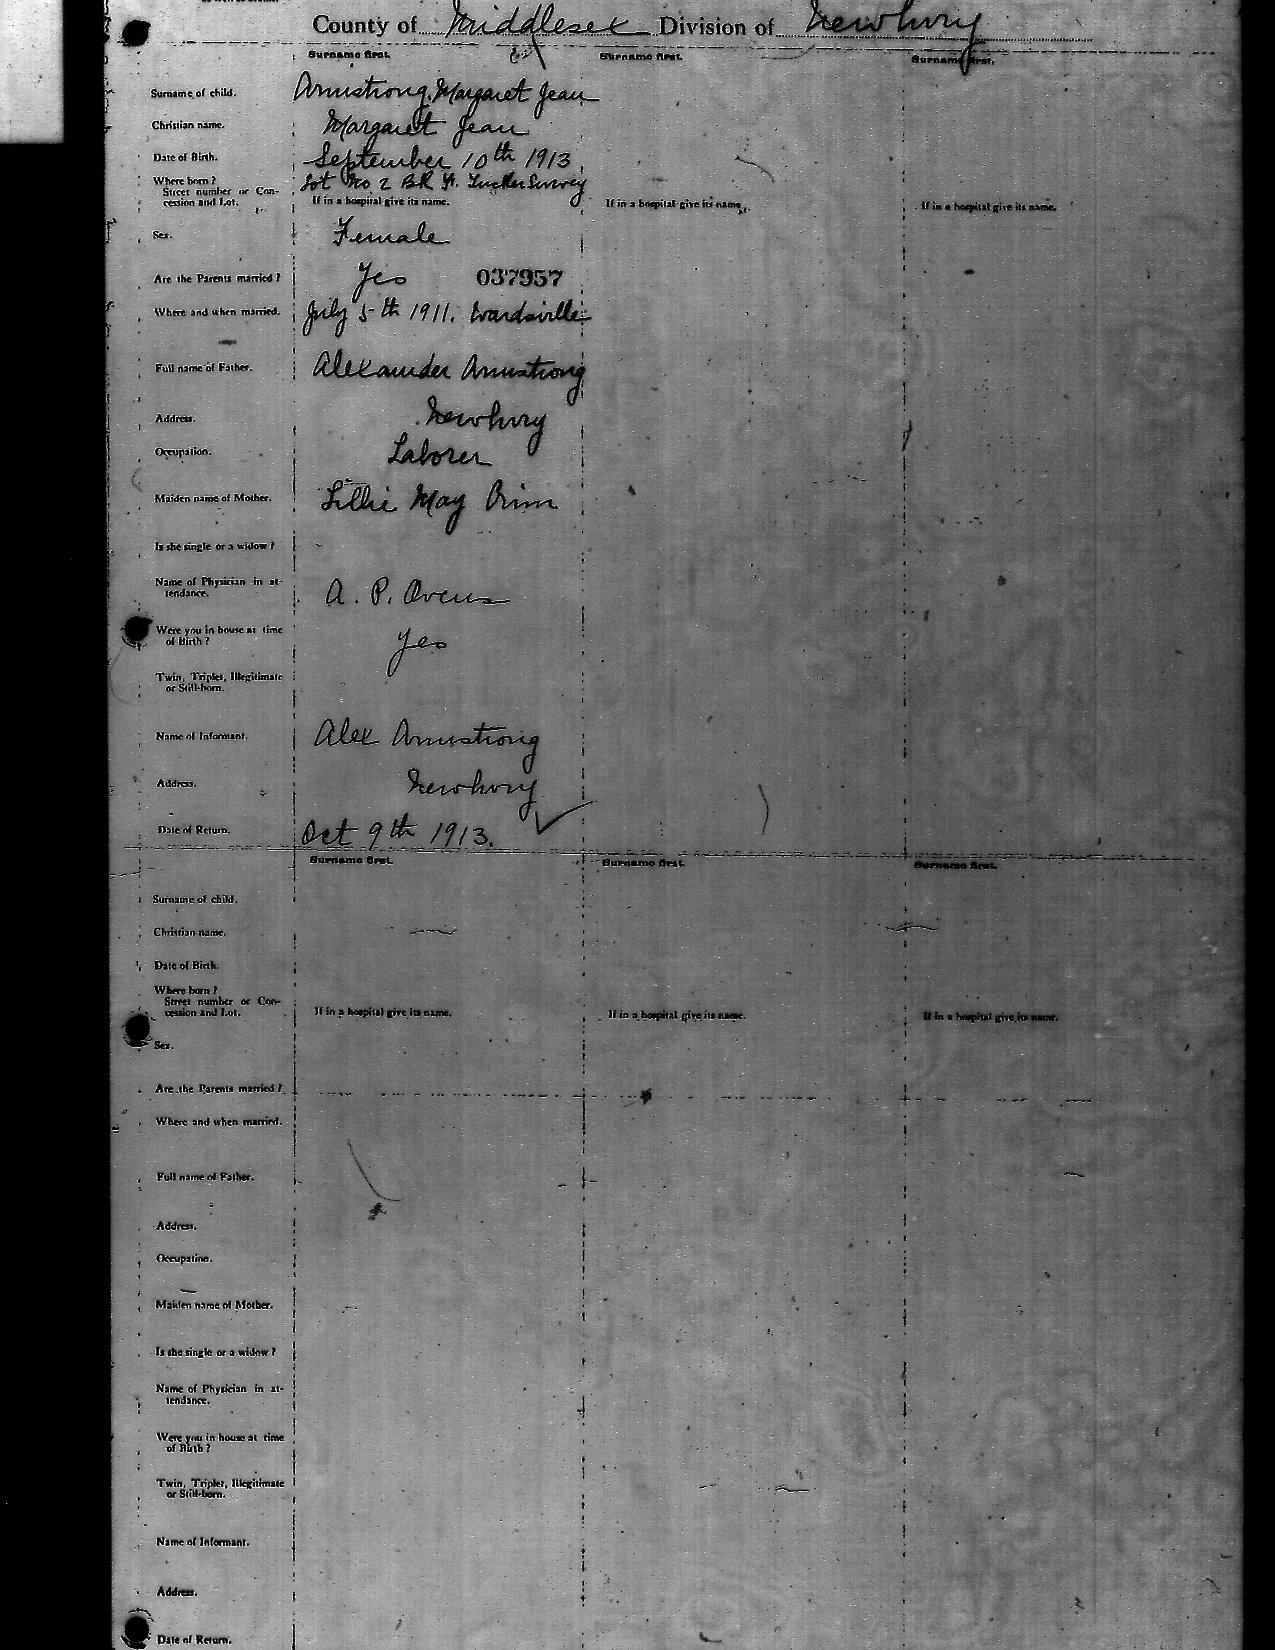 County of Middlesex Division of Newbury
Surname first. Surname first. Surname first.
Surname of child. Armstrong, Margaret Jean
Christian name. Margaret Jean
Date of Birth. September 10th 1913
Where born? Lot No 2 Tucker Survey
Street number or Con-
cession and Lot. If in a hospital give its name. If in a hospital give its name. If in a hospital give its name.
Sex. Female
Are the Parents married? Yes 037957
Where and when married. July 5th 1911. Wardsville
Full name of Father. Alexander Armstrong
Address. Newbury
Occupation. Laborer
Maiden name of Mother. Lillie May Prim
Is she single or a widow?
Name of Physician in at-
tendance. A. P. Owens
Were you in house at time
of Birth? Yes
Twin, Triplet, Illegitimate
or Still-born.
Name of Informant. Alex Armstrong
Address. Newbury
Date of Return. Oct 9th 1913.
Surname first. Surname first. Surname first.
Surname of child.
Christian name.
Date of Birth.
Where born?
Street number or Con-
cession and Lot. If in a hospital give its name. If in a hospital give its name. If in a hospital give its name.
Sex.
Are the Parents married?
Where and when married.
Full name of Father.
Address.
Occupation.
Maiden name of Mother.
Is she single or a widow?
Name of Physician in at-
tendance.
Were you in house at time
of Birth?
Twin, Triplet, Illegitimate
or Still-born.
Name of Informant.
Address.
Date of Return.